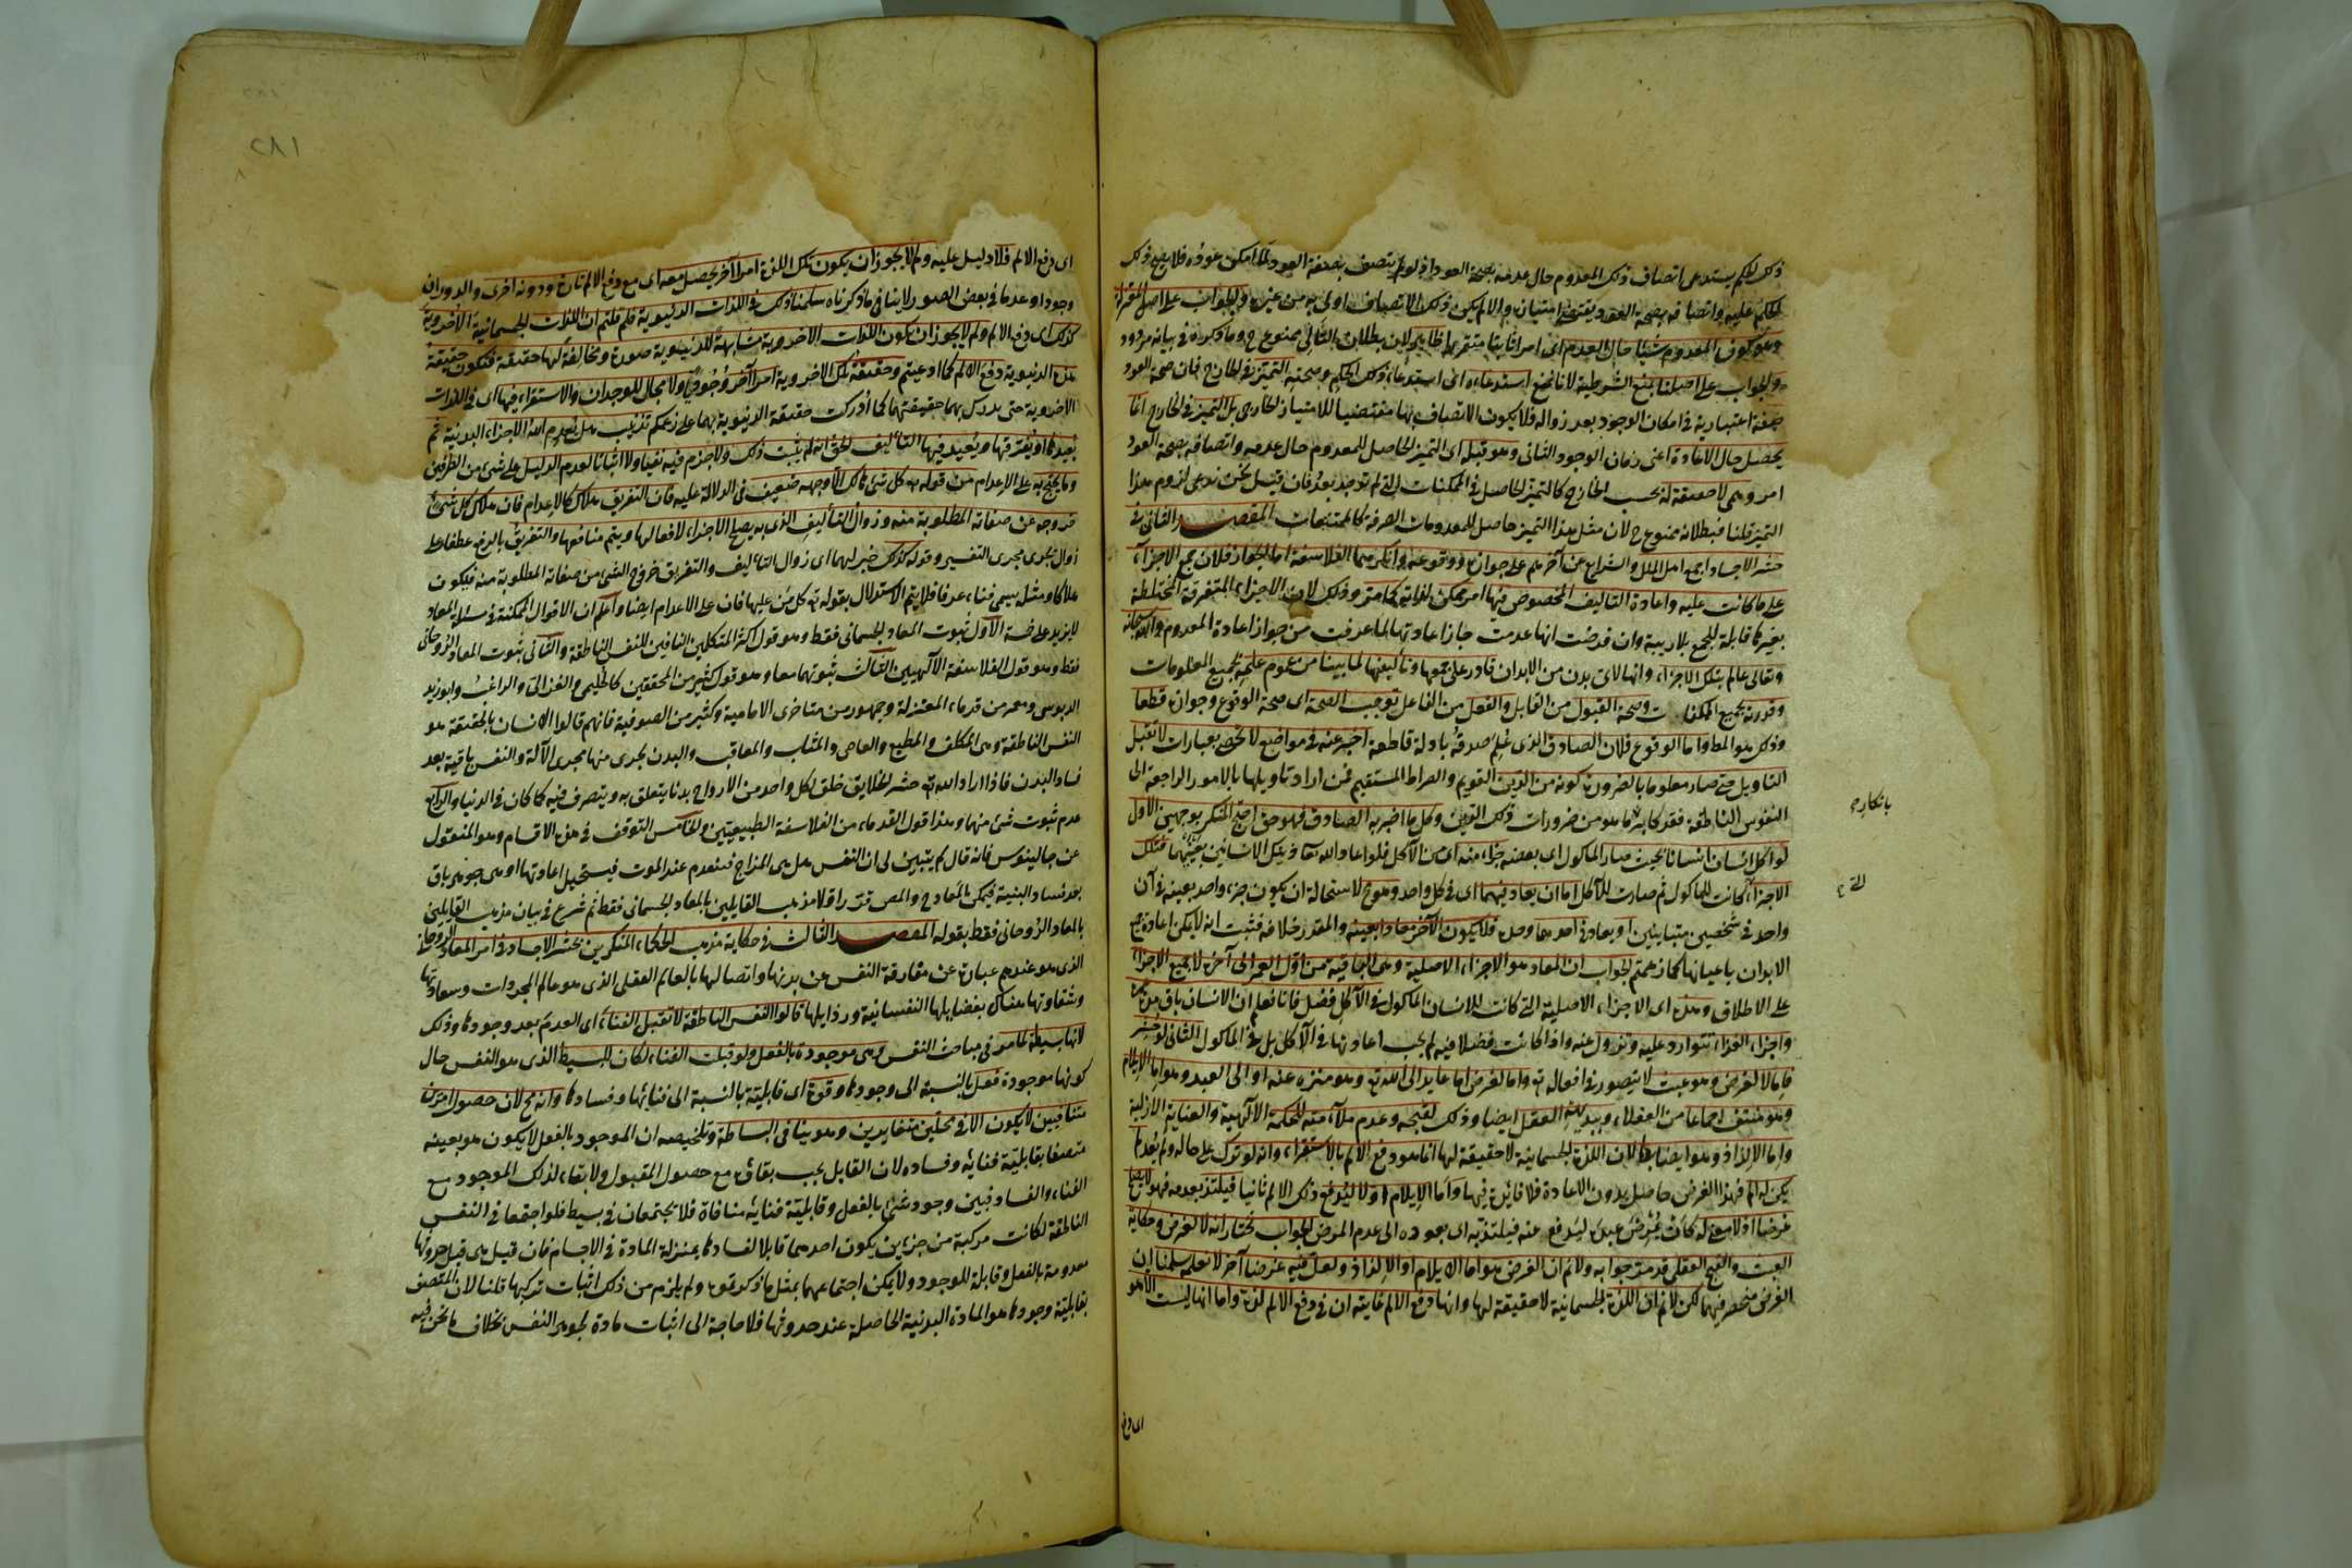 ذلك الحكم يستدعى اتصاف ذلك المعدوم حال عدمه بصحة العود اذ لو لم يتصف بصحة العود لما امكن عوده فلا يصح ذلك
الحكم عليه واتصافه بصحة العود يقتضى امتيازه والا لم يكن ذلك الاتصاف اولى به من غيره والجواب على اصل المعتزلة
وهو كون المعدوم شيئا حال العدم اى امرا ثابتا متقررا ظاهر لان بطلان التالى ممنوع ح وما ذكروه فى بيانه مردود
والجواب على اصلنا بمنع الشرطية لانا نمنع استدعاءه اى استدعاء ذلك الحكم وصحته التميز فى الخارج فان صحة العود
صفة اعتبارية هى امكان الوجود بعد زواله فلا يكون الاتصاف بها مقتضيا للامتياز الخارجى بل التميز فى الخارج انما
يحصل حال الاعادة اعنى زمان الوجود الثانى وهو قبله اى التميز الحاصل للمعدوم حال عدمه واتصافه بصحة العود
امر وهمى لا حقيقة له بحسب الخارج كالتميز الحاصل فى الممكنات التى لم توجد بعد فان قيل نحن ندعى لزوم هذا
التميز قلنا فبطلانه ممنوع ح لان مثل هذا التميز حاصل للمعدومات الصرفة كالممتنعات المقصد الثانى فى
حشر الاجساد اجمع اهل الملل والشرايع عن آخرهم على جوازه ووقوعه وانكرهما الفلاسفة اما الجواز فلان جمع الاجزاء
على ما كانت عليه واعادة التاليف المخصوص فيها امر ممكن لذاته كما مر وذلك لان الاجزاء المتفرقة المختلطة
بغيرها قابلة للجمع بلا ريبة وان فرضت انها عدمت جاز اعادتها لما عرفت من جواز اعادة المعدوم والله سبحانه
وتعالى عالم بتلك الاجزاء وانها لاى بدن من الابدان قادر على جمعها وتأليفها لما بينا من عموم علمه لجميع المعلومات
وقدرته لجميع الممكنات وصحة القبول من القابل والفعل من الفاعل توجب الصحة اى صحة الوقوع وجوازه قطعا
وذلك هو المط واما الوقوع فلان الصادق الذى علم صدقه بادلة قاطعة اخبر عنه فى مواضع لا تحصى بعبارات لا تقبل
التاويل حتى صار معلوما بالضرورة كونه من الدين القويم والصراط المستقيم فمن اراد تاويلها بالامور الراجعة الى
النفوس الناطقة فقد كابر ما هو من ضرورات ذلك الدين وكل ما اخبر به الصادق فهو حق احتج المنكر بوجهين الاول
بانكاره
لو اكل انسان انسانا بحيث صار المأكول اى بعضه جزءا منه اى من الآكل فلو اعاد الله تعا ذينك الانسانين بعينهما فتلك
الاجزاء كانت للماكول ثم صارت للآكل اما ان يعاد فيهما اى فى كل واحد وهو مح لاستحالة ان يكون جزء واحد بعينه فى آن
واحد فى شخصين متباينين او يعاد فى احدهما وحده فلا يكون الآخر معادا بعينه والمقدر خلافه فثبت انه لا يمكن اعادة جميع
الابدان باعيانها كما زعمتم الجواب ان المعاد هو الاجزاء الاصلية وهى الباقية من اول العمر الى آخره لا جميع الاجزاء
على الاطلاق وهذه اى الاجزاء الاصلية التى كانت للانسان المأكول فى الآكل فضل فانا نعلم ان الانسان باق مدة عمره
واجزاء الغذاء تتوارد عليه وتزول عنه واذا كانت فضلا فيه لم يجب اعادتها فى الآكل بل فى الماكول الثانى لو حشر
فاما لا لغرض وهو عبث لا يتصور فى افعاله تع واما لغرض اما عايد الى الله تع وهو منزه عنه او الى العبد وهو اما الايلام
وهو منتف اجماعا من العقلاء وببديهة العقل ايضا وذلك لقبحه وعدم ملايمته للحكمة الالهية والعناية الازلية
واما الالذاذ وهو ايضا بط لان اللذة الجسمانية لا حقيقة لها انما هو دفع الالم بالاستقراء وانه لو ترك على حاله ولم يعد لم
يكن له الم فهذا الغرض حاصل بدون الاعادة فلا فائدة فيها واما الايلام اولا ليدفع ذلك الالم ثانيا فيلتذ بعدمه فهو لا يصلح
غرضا اذ لا معنى له كأن يمرض عبده ليدفع عنه فيلتذ به اى بعوده الى عدم المرض الجواب نختار انه لا لغرض وحكاية
العبث والقبح العقلى قد مر جوابه ولا نم ان الغرض هو اما الايلام او الالذاذ ولعل فيه غرضا آخر لا نعلمه سلمنا ان
الغرض منحصر فيهما لكن لا نم ان اللذة الجسمانية لا حقيقة لها وانها دفع الالم غايته ان فى دفع الالم لذة واما انها ليست الا هو
اى دفع
٢٨١
اى دفع الالم فلا دليل عليه ولم لا يجوز ان يكون تلك اللذة امرا آخر يحصل معه اى مع دفع الالم تارة ودونه اخرى والدوران
وجودا وعدما فى بعض الصور لا ينافى ما ذكرناه سلمنا ذلك فى اللذات الدنيوية فلم قلتم ان اللذات الجسمانية الاخروية
كذلك اى دفع الالم ولم لا يجوز ان يكون اللذات الاخروية مشابهة للدنيوية صورة ومخالفة لها حقيقة فتكون حقيقة
هذه الدنيوية دفع الالم كما ادعيتم وحقيقة تلك الاخروية امرا آخر وجوديا ولا مجال للوجدان والاستقراء فيها اى فى اللذات
الاخروية حتى يدرك بهما حقيقتها كما ادركت حقيقة الدنيوية بهما على زعمكم تذنيب هل يعدم الله الاجزاء البدنية ثم
يعيدها او يفرقها ويعيد فيها التأليف الحق انه لم يثبت ذلك ولا جزم فيه نفيا ولا اثباتا لعدم الدليل على شىء من الطرفين
وما يحتج به على الاعدام من قوله تع كل شىء هالك الا وجهه ضعيف فى الدلالة عليه فان التفريق هلاك كالاعدام فان هلاك كل شىء
خروجه عن صفاته المطلوبة منه وزوال التأليف الذى به يصلح الاجزاء لافعالها ويتم منافعها والتفريق بالرفع عطفا على
زوال يجرى مجرى التفسير وقوله كذلك خبر لهما اى زوال التأليف والتفريق خروج الشىء من صفاته المطلوبة منه فيكون
هلاكا ومثله يسمى فناء عرفا فلا يتم الاستدلال بقوله تع كل من عليها فان على الاعدام ايضا واعلم ان الاقوال الممكنة فى مسئلة المعاد
لا يزيد على خمسة الاول ثبوت المعاد الجسمانى فقط وهو قول اكثر المتكلمين النافين للنفس الناطقة والثانى ثبوت المعاد الروحانى
فقط وهو قول الفلاسفة الآلهيين الثالث ثبوتهما معا وهو قول كثير من المحققين كالحليمى والغزالى والراغب وابو زيد
الدبوسى ومعمر من قدماء المعتزلة وجمهور من متأخرى الامامية وكثير من الصوفية فانهم قالوا الانسان بالحقيقة هو
النفس الناطقة وهى المكلف والمطيع والعاصى والمثاب والمعاقب والبدن يجرى منها مجرى الآلة والنفس باقية بعد
فساد البدن فاذا اراد الله تع حشر الخلايق خلق لكل واحد من الارواح بدنا يتعلق به ويتصرف فيه كما كان فى الدنيا والرابع
عدم ثبوت شىء منهما وهذا قول القدماء من الفلاسفة الطبيعيين والخامس التوقف فى هذه الاقسام وهو المنقول
عن جالينوس فانه قال لم يتبين لى ان النفس هل هى المزاج فينعدم عند الموت فيستحيل اعادتها او هى جوهر باق
بعد فساد البنية فيمكن المعاد ح والمص قرر اولا مذهب القايلين بالمعاد الجسمانى فقط ثم شرع فى بيان مذهب القايلين
بالمعاد الروحانى فقط بقوله المقصد الثالث فى حكاية مذهب الحكماء المنكرين بحشر الاجساد فى امر المعاد الروحانى
الذى هو عندهم عبارة عن مفارقة النفس عن بدنها واتصالها بالعالم العقلى الذى هو عالم المجردات وسعادتها
وشقاوتها هناك بفضايلها النفسانية ورذايلها قالوا النفس الناطقة لا تقبل الفناء اى العدم بعد وجودها وذلك
لانها بسيطة لما مر فى مباحث النفس وهى موجودة بالفعل ولو قبلت الفناء لكان للبسيط الذى هو النفس حال
كونها موجودة فعل بالنسبة الى وجودها وقوة اى قابلية بالنسبة الى فنائها وفسادها وانه مح لان حصول امرين
متنافيين لا يكون الا فى محلين متغايرين وهو ينافى البساطة وتلخيصه ان الموجود بالفعل لا يكون هو بعينه
متصفا بقابلية فنائه وفساده لان القابل يجب بقاؤه مع حصول المقبول ولا بقاء لذلك الموجود مع
الفناء والفساد فبين وجود شىء بالفعل وقابلية فنائه منافاة فلا يجتمعان فى بسيط فلو اجتمعا فى النفس
الناطقة لكانت مركبة من جزءين يكون احدهما قابلا لفسادها بمنزلة المادة فى الاجسام فان قيل هى قبل حدوثها
معدومة بالفعل وقابلة للوجود ولا يمكن اجتماعهما بمثل ما ذكرتموه ولم يلزم من ذلك اثبات تركبها قلنا لان المتصف
بقابلية وجودها هو المادة البدنية الحاصلة عند حدوثها فلا حاجة الى اثبات مادة لجوهر النفس بخلاف ما نحن فيه